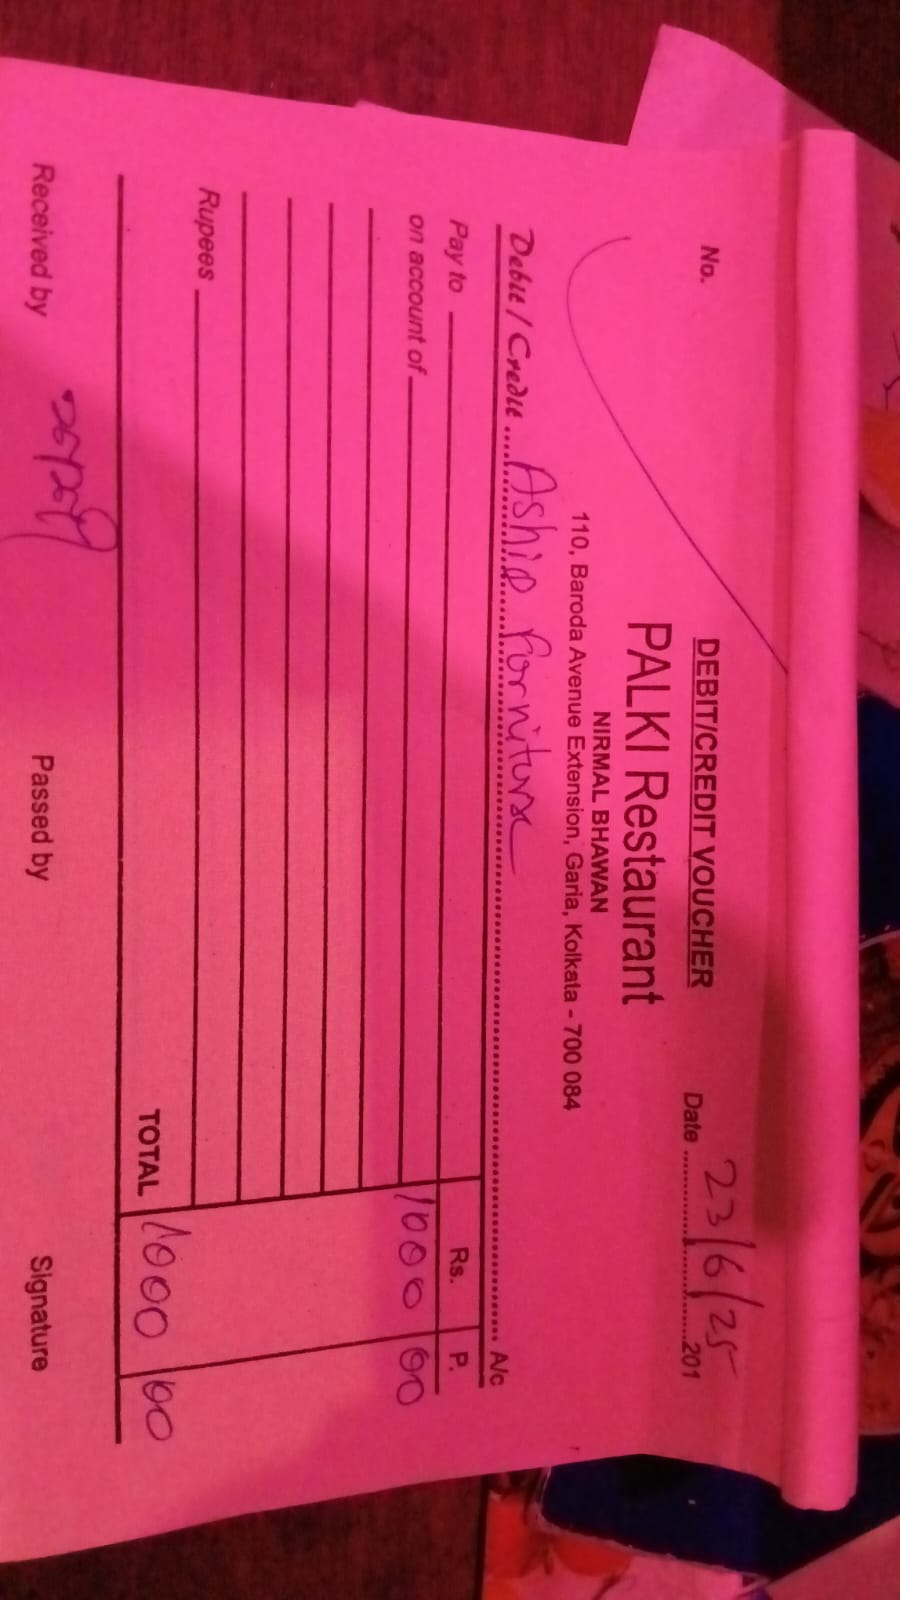 No.
DEBIT/CREDIT VOUCHER
Date 23/6/25 201
PALKI Restaurant
NIRMAL BHAWAN
110, Baroda Avenue Extension, Garia, Kolkata - 700 084
Debit / Credit Ashis Forniture A/c
Pay to Rs. P.
on account of 1000 00
Rupees
TOTAL 1000 00
Received by Passed by Signature